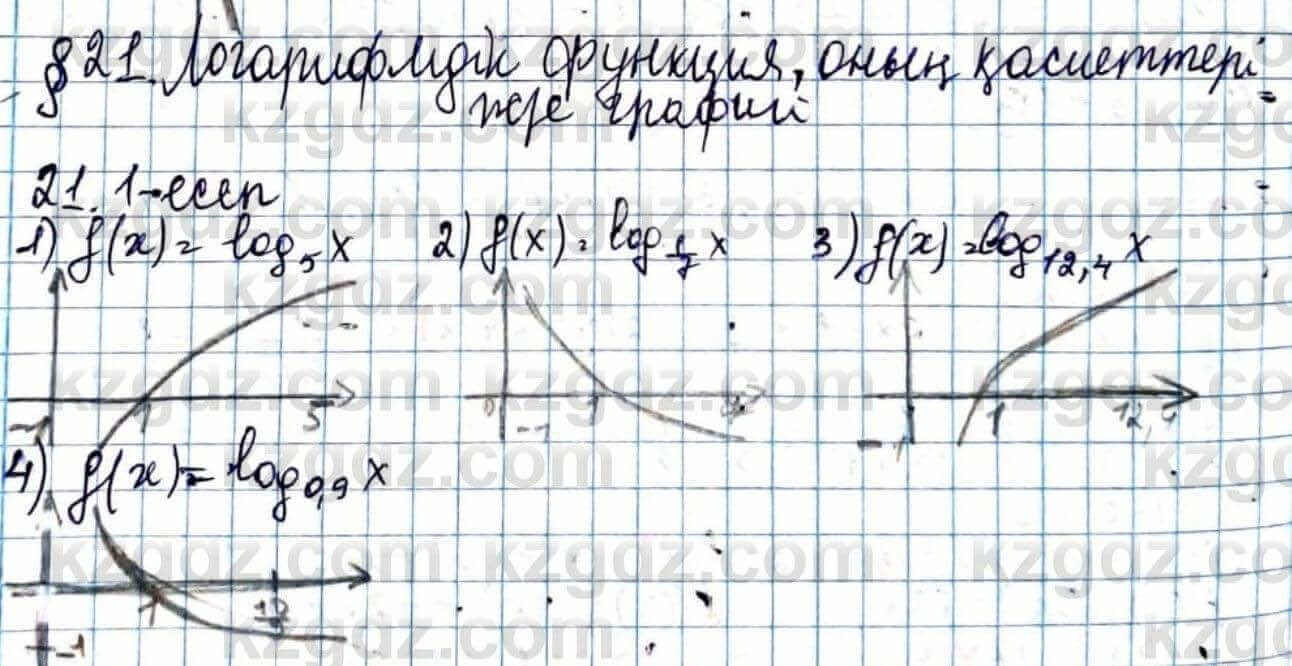 §21. Логарифмдік функция, оның қасиеттері
және графигі
21.1-есеп
1) f(x) = log₅x 2) f(x) = log_{1/7} x 3) f(x) = log₁₂,₄ x
1 5
-1
0 1
-1
1 12,4
-1
4) f(x) = log₀,₉x
1
-1
kzgdz.com